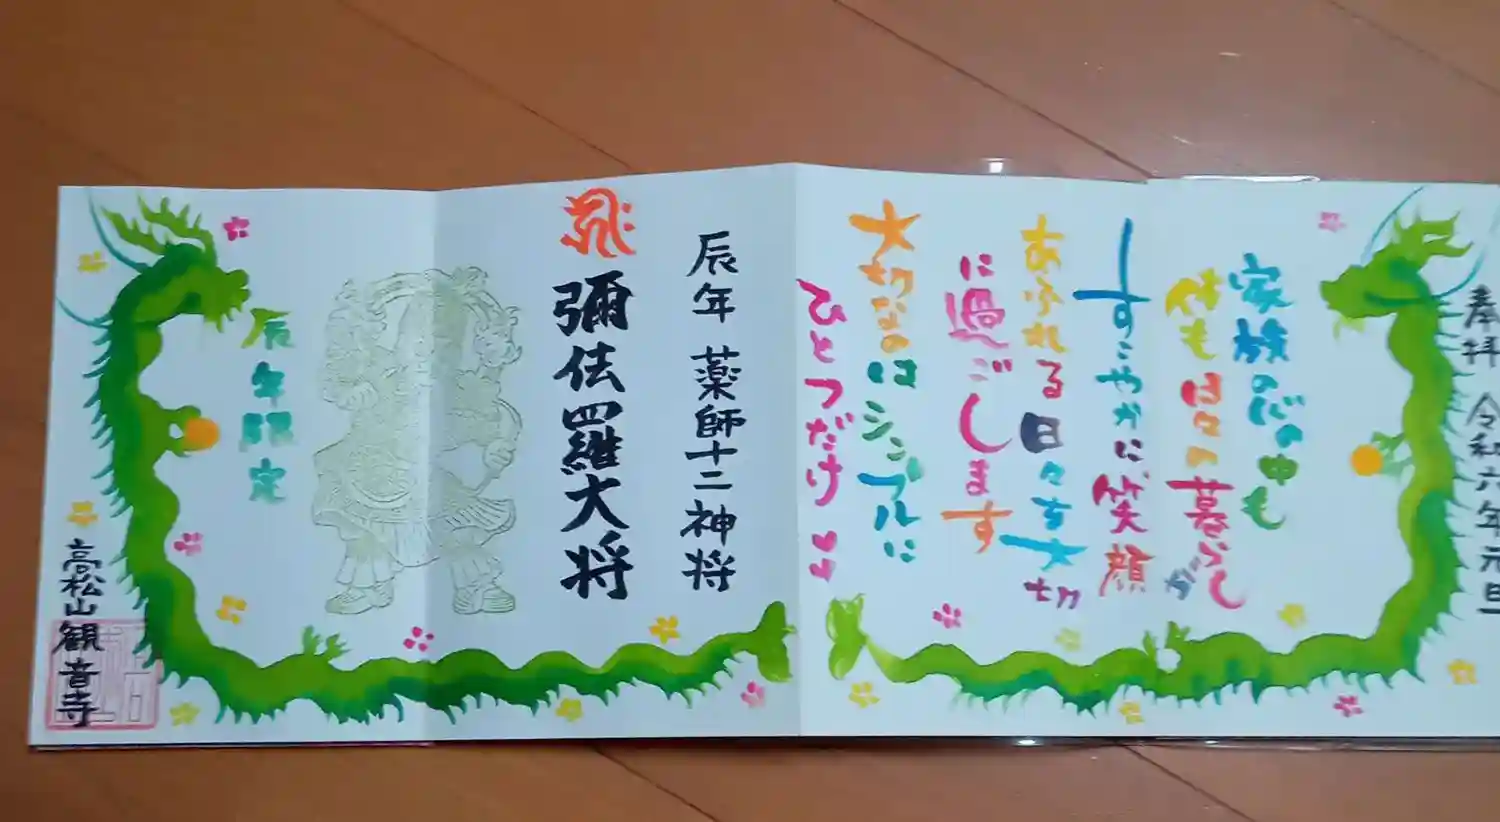 奉拝 令和六年元旦
家族の心の中も
体も日々の暮らしが
すこやかに、笑顔
あふれる日々を大切
に過ごします
大切なのはシンプルに
ひとつだけ♥♥
辰年 薬師十二神将
彌佉羅大将
辰年限定
高松山観音寺